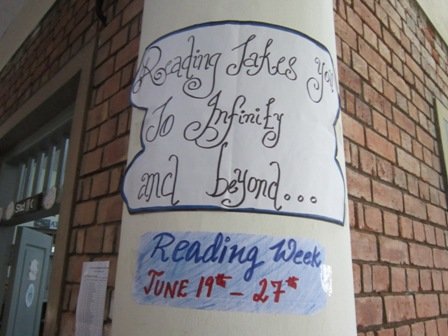 Reading Takes you
To Infinity
and beyond...
Reading Week
JUNE 19th - 27th